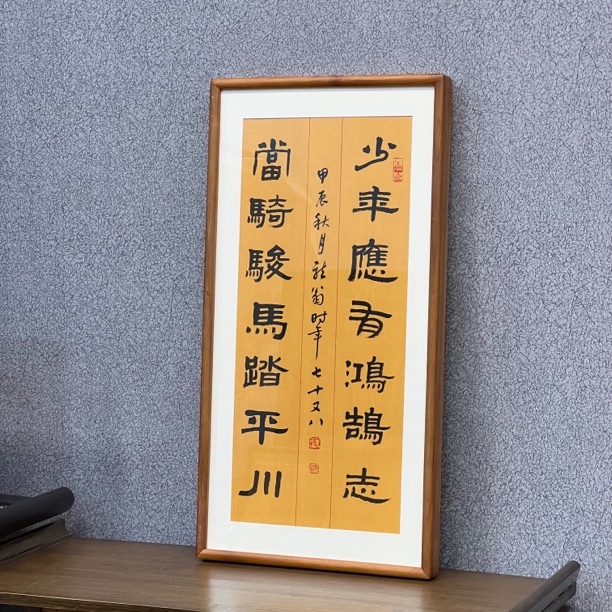 少年應有鴻鵠志
當騎駿馬踏平川
甲辰秋月 龍翁时年七十又八